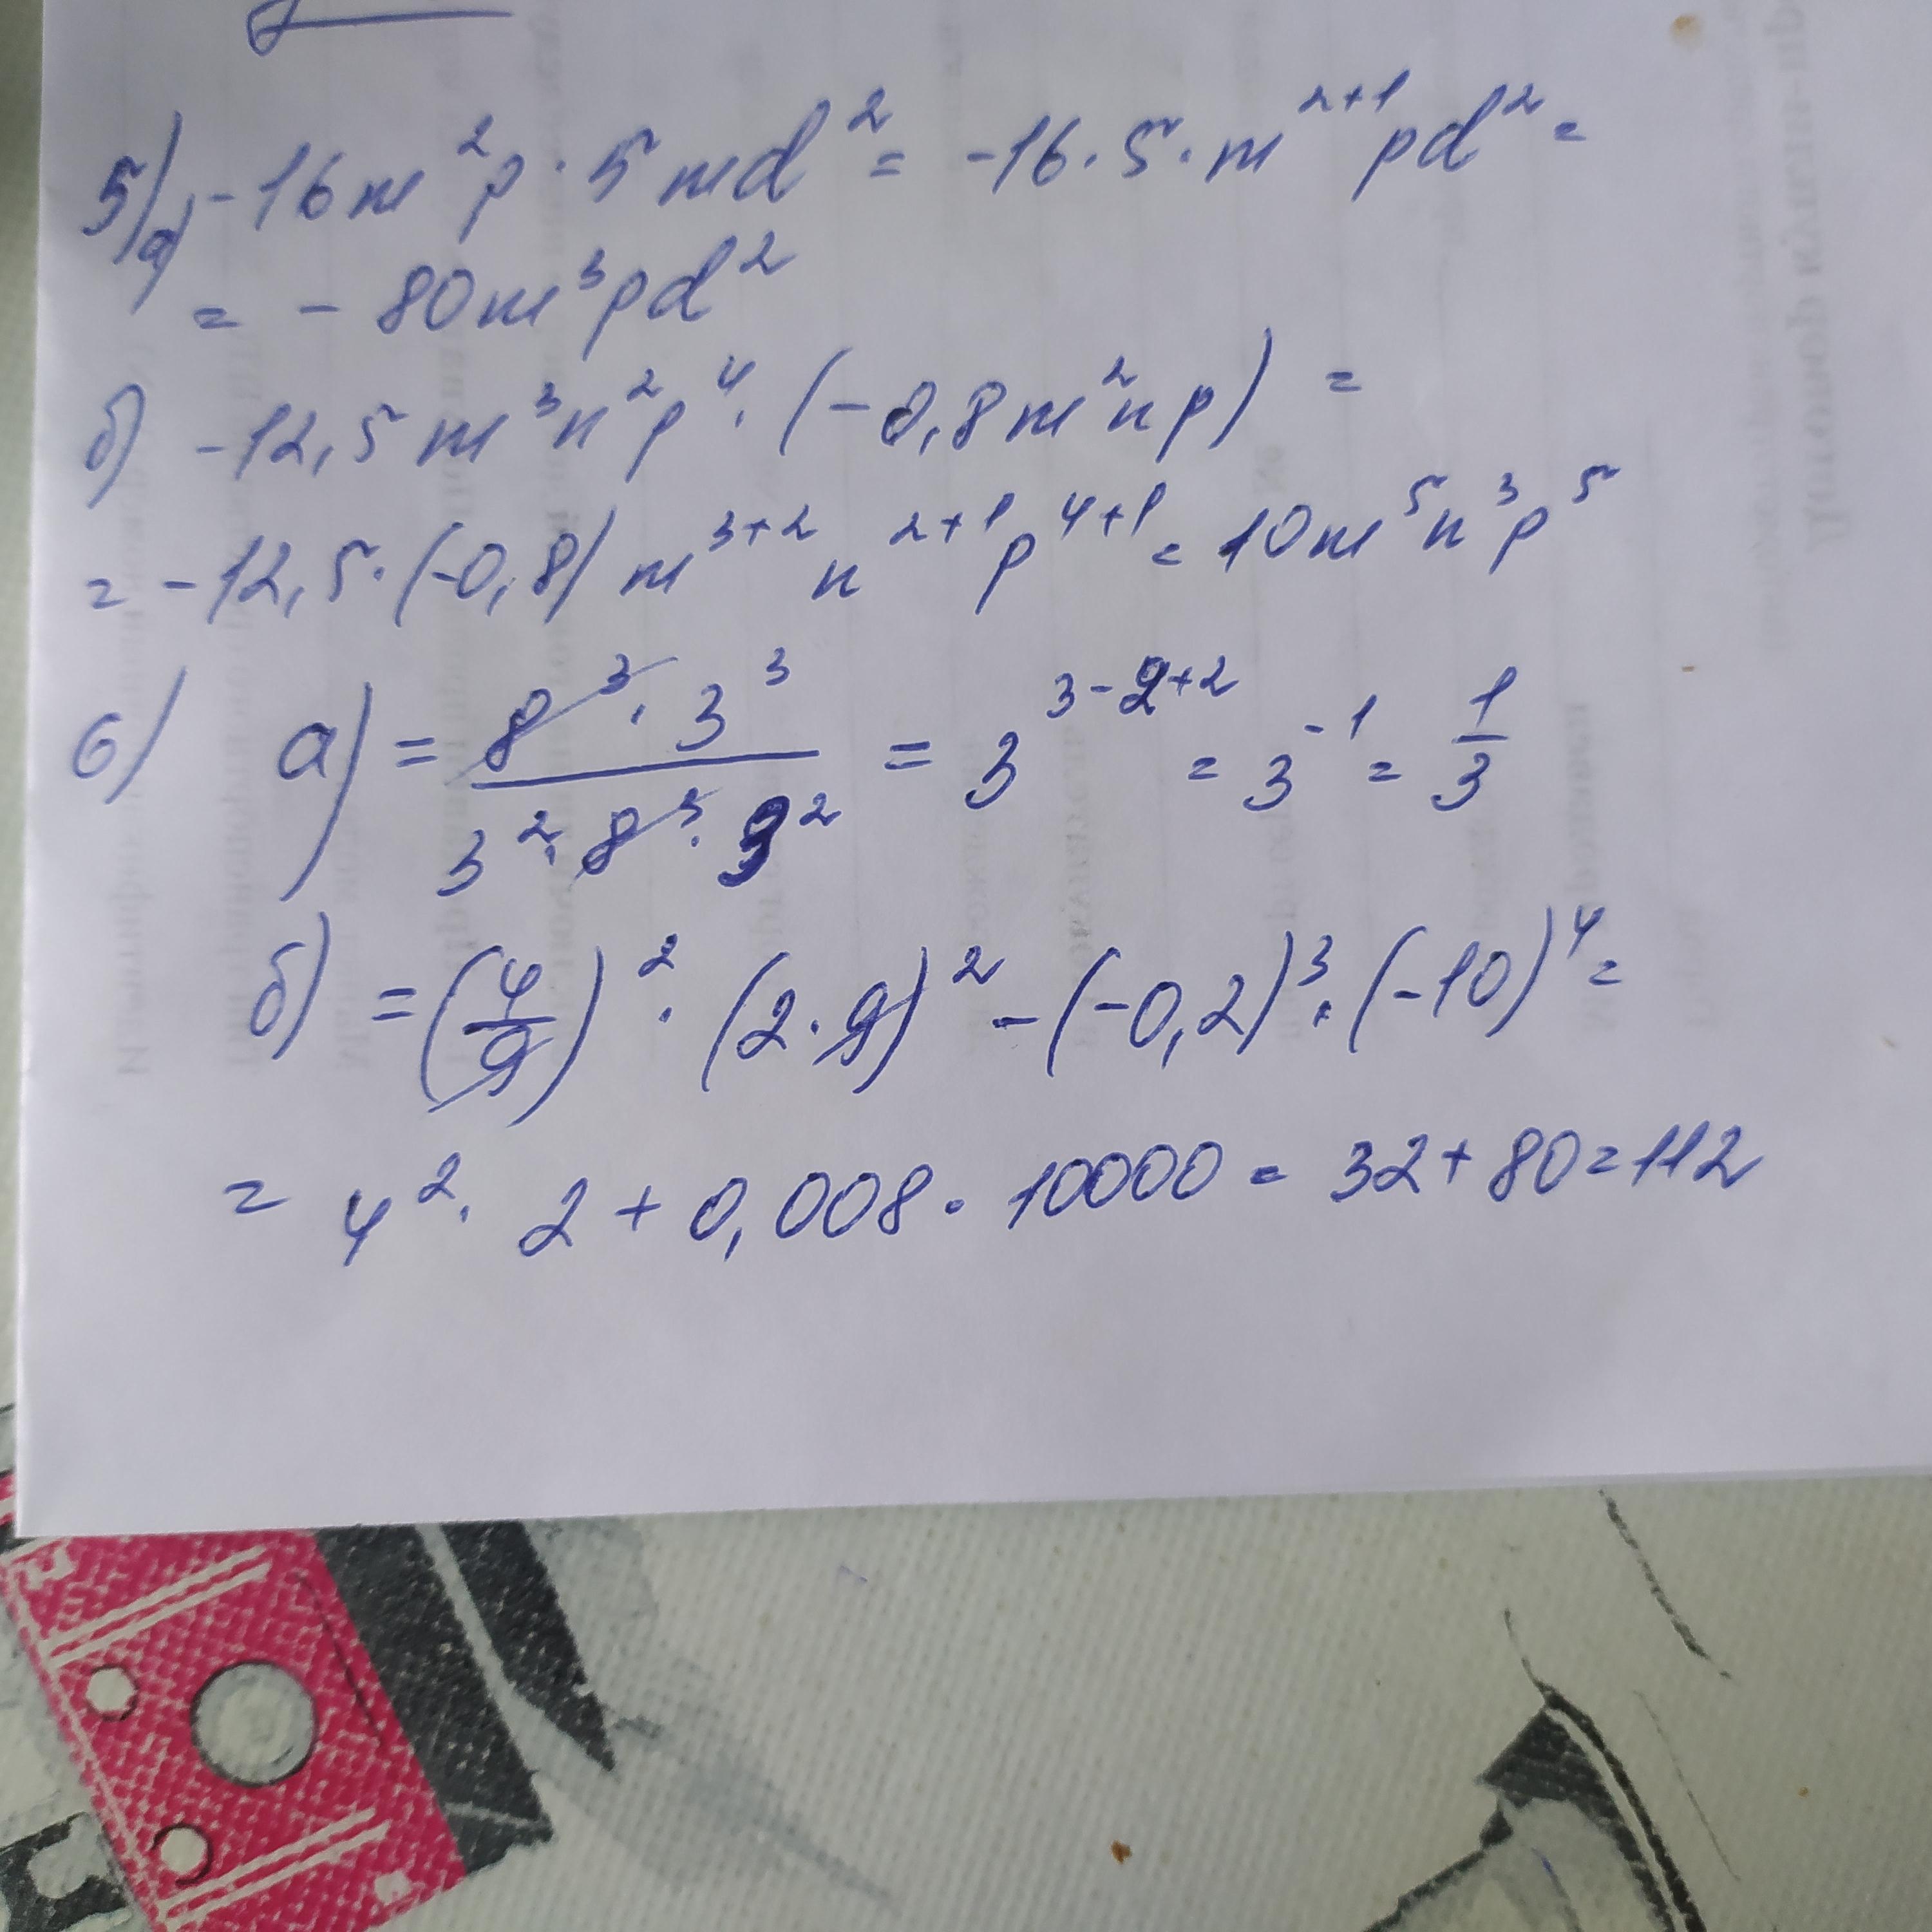 5) а) -16m²p · 5md² = -16 · 5 · m²⁺¹pd² =
= - 80m³pd²
б) -12,5m³n²p⁴ · (-0,8m²np) =
= -12,5 · (-0,8) m³⁺² n²⁺¹p⁴⁺¹ = 10m⁵n³p⁵
6) а) = (8³ · 3³)/(3² · 8³ · 3²) = 3³⁻²⁺² = 3⁻¹ = 1/3
б) = (4/9)² · (2 · 9)² - (-0,2)³ · (-10)⁴ =
= 4² · 2 + 0,008 · 10000 = 32 + 80 = 112